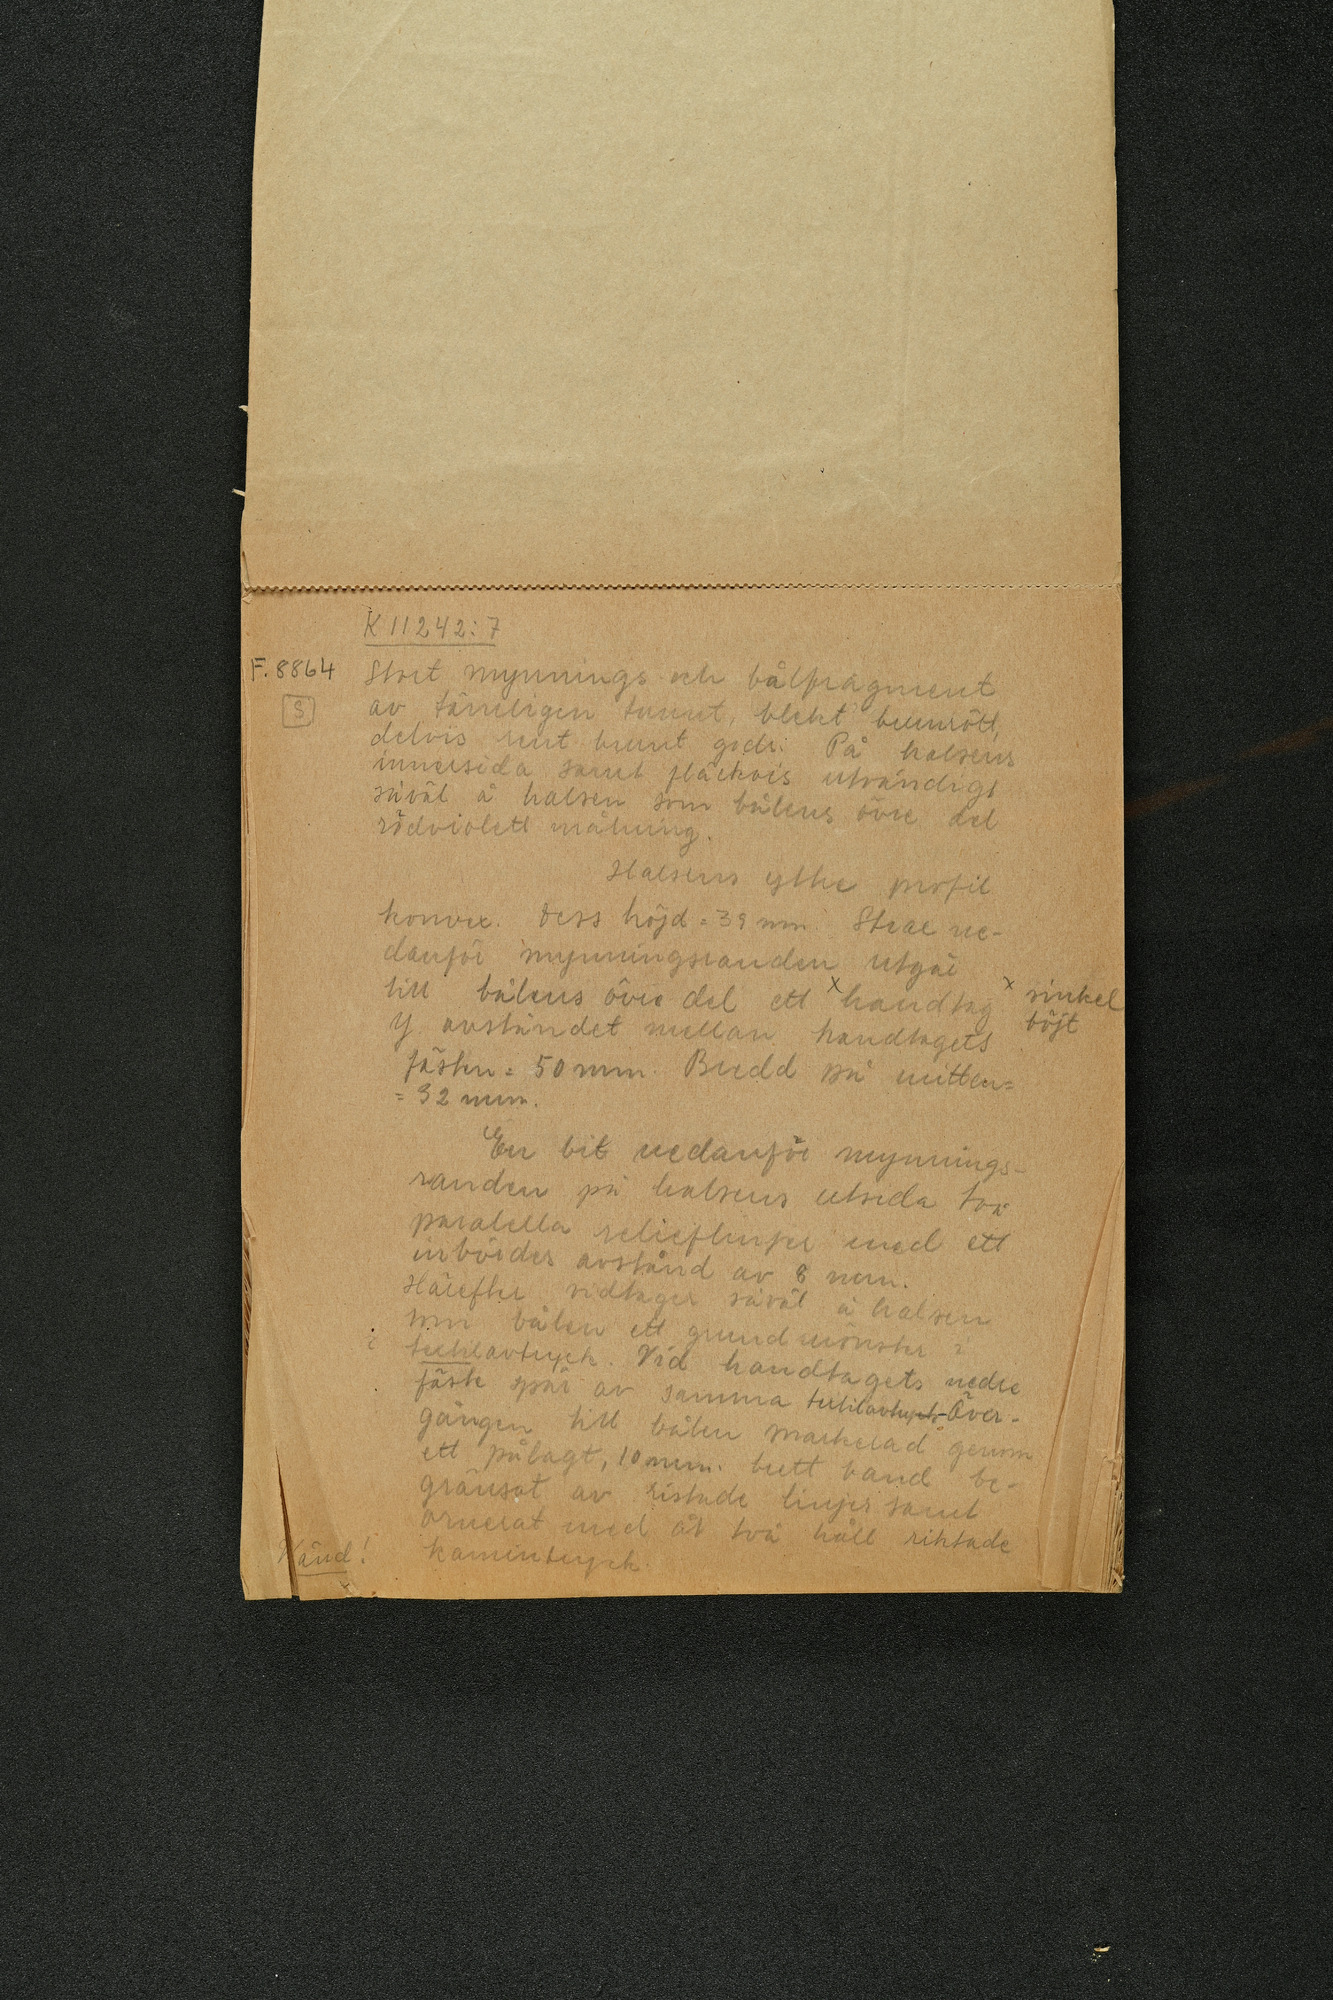 K 11242:7
F. 8864
S
Stort mynnings och bålfragment
av tämligen tunnt, blekt brunrött,
delvis rent brunt gods. På halsens
innersida samt fläckvis utvändigt
såväl å halsen som bålens övre del
rödviolett målning.
Halsens yttre profil
konvex. Dess höjd = 39 mm. Strax ne-
danför mynningsranden utgår
till bålens övre del ett x handtag x vinkel
böjt
Y. avståndet mellan handtagets
fästen = 50 mm. Bredd på mitten=
= 32 mm.
En bit nedanför mynnings-
randen på halsens utsida två
paralella relieflinjer med ett
inbördes avstånd av 8 mm.
Härefter vidtager såväl å halsen
som bålen ett grundmönster i
textilavtryck. Vid handtagets nedre
fäste spår av samma textilavtryck Över-
gången till bålen markerad genom
ett pålagt, 10 mm. brett band be-
gränsat av ristade linjer samt
ornerat med åt två håll riktade
kamintryck.
Vänd!